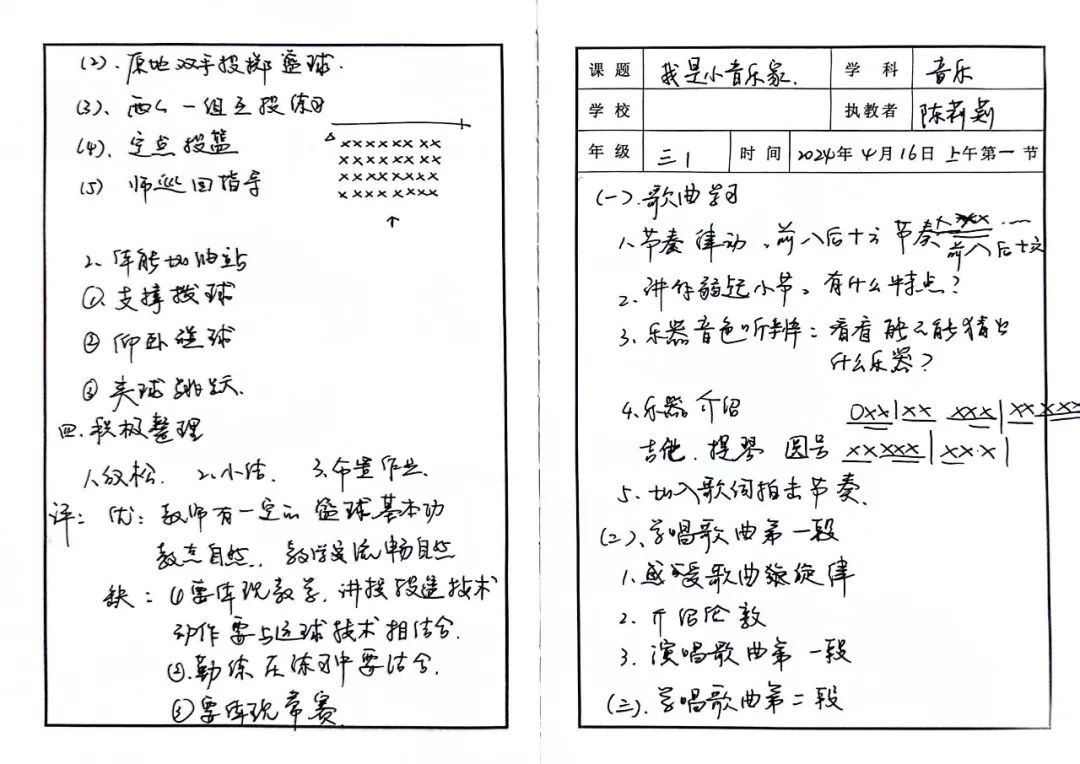 (2). 原地双手投掷篮球.
(3). 两人一组互投练习
(4). 定点投篮
(5) 师巡回指导
△ ×××××× ××
×××××× ××
×××××× ××
××××××××
↑
2. 体能加油站
① 支撑拨球
② 仰卧送球
③ 夹球跳跃.
四. 积极整理
1.放松. 2.小结. 3.布置作业.
评: 优: 教师有一定的篮球基本功
教态自然. 教学流畅自然
缺: ①要体现教学. 讲授投篮技术
动作要与运球技术相结合.
②.勤练 在练习中要结合.
③要体现常赛.
课题 我是小音乐家. 学科 音乐
学校 执教者 陈莉莉
年级 三1 时间 2024年4月16日 上午第一节
(一).歌曲学习
1.节奏律动. 前八后十六节奏 ×××× ....
前八后十六
2.讲解弱起小节。有什么特点?
3.乐器音色听辨: 看看能不能猜出
什么乐器?
4.乐器介绍 0××|×× ×××|×× ×××
吉他. 提琴 圆号 ×× ×××|××·×|
5.加入歌词拍击节奏.
(二).学唱歌曲第一段
1.感受歌曲旋律
2.介绍伦敦
3.演唱歌曲第一段
(三).学唱歌曲第二段